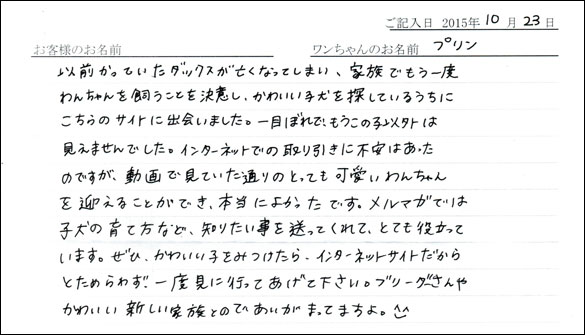 ご記入日 2015年10月23日
お客様のお名前 ワンちゃんのお名前 プリン
以前かっていたダックスが亡くなってしまい、家族でもう一度
わんちゃんを飼うことを決意し、かわいい子犬を探しているうちに
こちらのサイトに出会いました。一目ぼれで、もうこの子以外は
見えませんでした。インターネットでの取り引きに不安はあった
のですが、動画で見ていた通りのとっても可愛いわんちゃん
を迎えることができ、本当によかったです。メルマガでは
子犬の育て方など、知りたい事を送ってくれて、とても役立って
います。ぜひ、かわいい子をみつけたら、インターネットサイトだから
とためらわず、一度見に行ってあげて下さい。ブリーダーさんや
かわいい新しい家族とのであいがまってますよ。^^